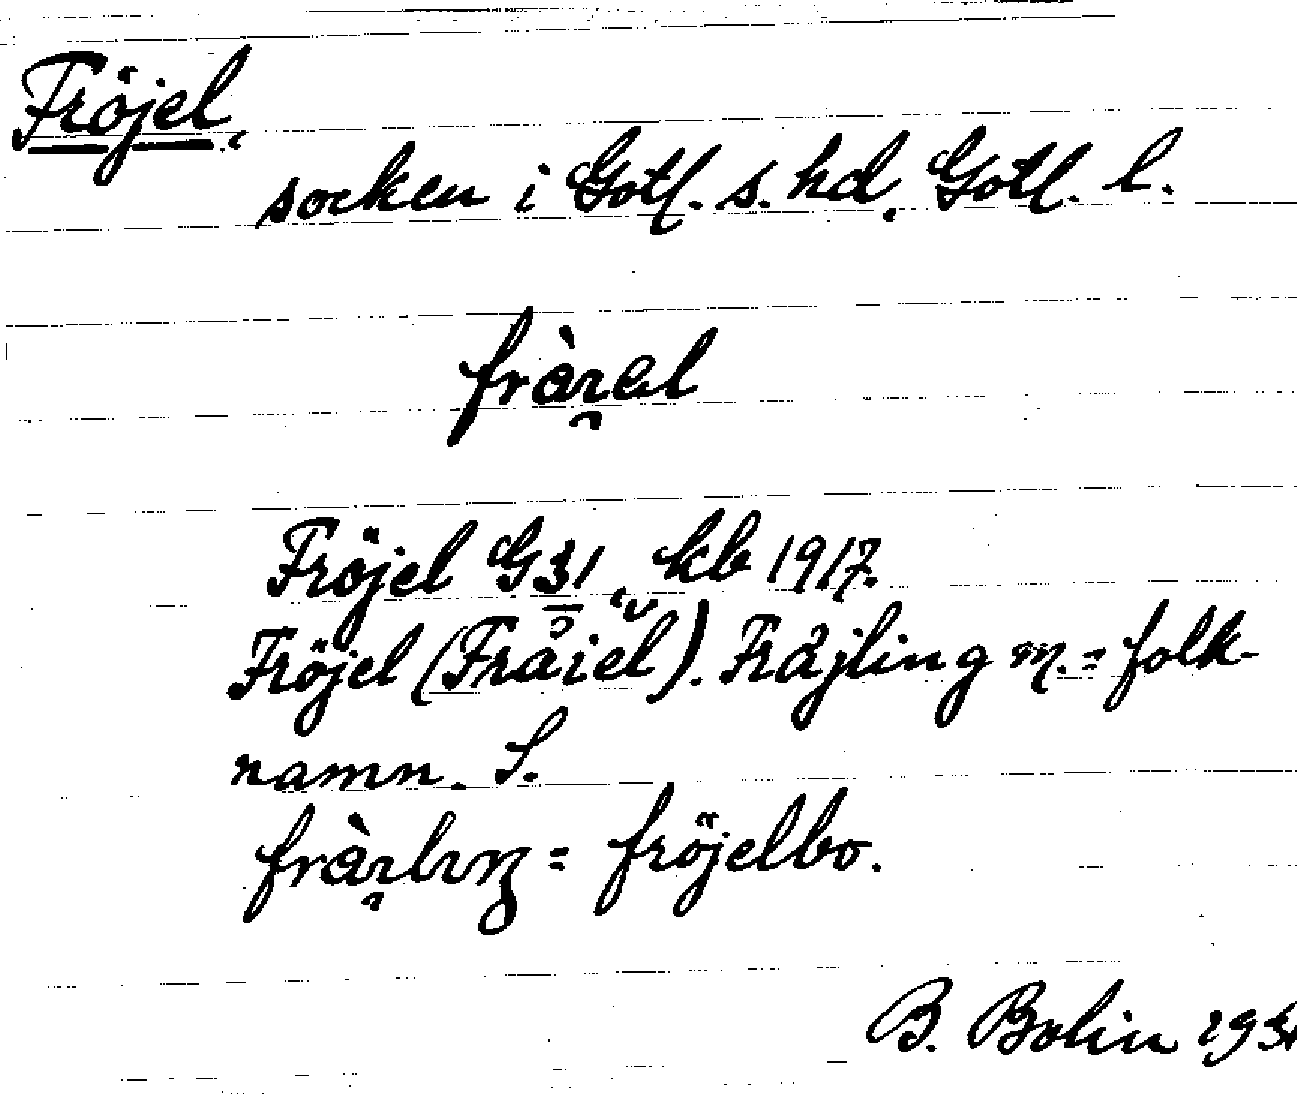 Fröjel,
socken i Gotl. s. hd, Gotl. l.
fràɪ̯el
Fröjel G 31, kb 1917.
Fröjel (Fråiel). Fråjling m. = folk-
namn. S.
= fröjelbo.
B. Bolin 193